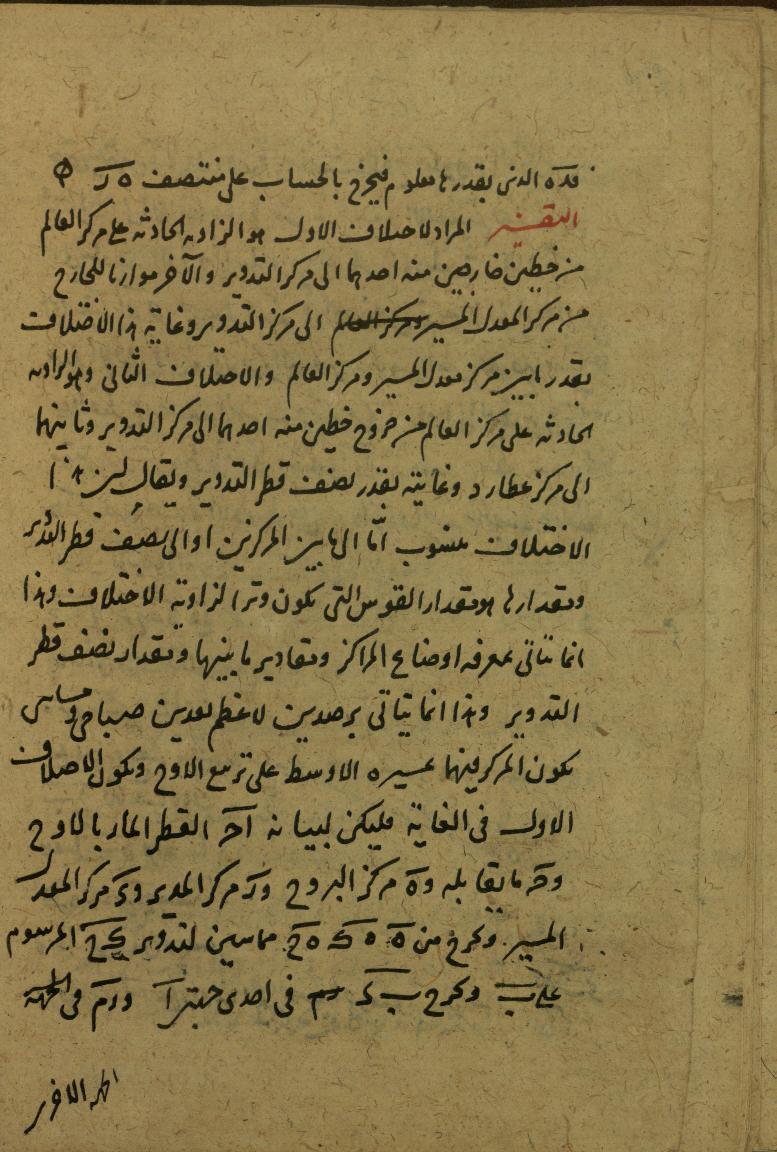 فده الذى بقدرها معلوم فيخرج بالحساب على منتصف ه د
التفسير المراد لاختلاف الاول هو الزاويه الحادثه على مركز العالم
من خطين خارجين منه احدهما الى مركز التدوير والآخر موازيا للخارج
من مركز المعدل المسير ومركز العالم الى مركز التدوير وغاية هذا الاختلاف
بقدر ما بين مركز معدل المسير ومركز العالم والاختلاف الثانى وهو الزاويه
الحادثه على مركز العالم من خروج خطين منه احدهما الى مركز التدوير وثانيهما
الى مركز عطارد وغايته بقدر نصف قطر التدوير ويقال لهذا
الاختلاف منسوب امّا الى ما بين المركزين او الى نصف قطر التدوير
ومقدارها هو مقدار القوس التى تكون وترا لزاوية الاختلاف وهذا
انما يتاتى بمعرفه اوضاع المراكز ومقادير ما بينها ومقدار نصف قطر
التدوير وهذا انما يتاتى برصدين لاعظم بعدين صباحى ومسائى
يكون المركز فيهما بمسيره الاوسط على تربيع الاوج ويكون الاختلاف
الاول فى الغاية فليكن لبيانه احد القطر المار بالاوج
وحد ما يقابله وه مركز البروج ود مركز المدير وى مركز المعدل
المسير ونخرج من ه ه ك ه ح مماسين لتدوير ك ح المرسوم
على ب ونخرج ب ى فى احدى جهتى ا ود م فى الجهة
الجهه الاخر